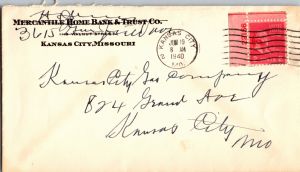 H.
MERCANTILE HOME BANK & TRUST CO.
3615
KANSAS CITY, MISSOURI
KANSAS CITY
JUN 19
8 AM
1940
MO.
2
Kansas City Gas Company
824 Grand Ave
Kansas City
Mo